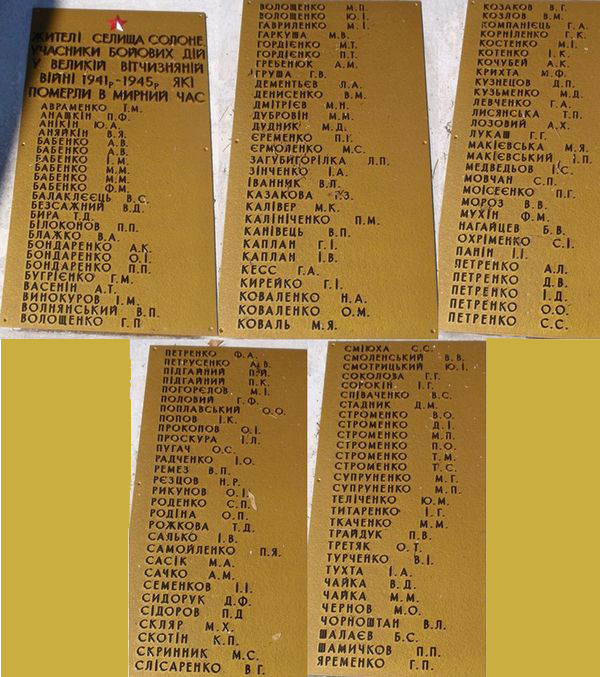 ЖИТЕЛІ СЕЛИЩА СОЛОНЕ
УЧАСНИКИ БОЙОВИХ ДІЙ
У ВЕЛИКІЙ ВІТЧИЗНЯНІЙ
ВІЙНІ 1941р.-1945р, ЯКІ
ПОМЕРЛИ В МИРНИЙ ЧАС
АВРАМЕНКО Г.М.
АНАШКІН П.Ф.
АНІКІН Ю.А.
АНЯЙКІН В.Я.
БАБЕНКО А.В.
БАБЕНКО А.В.
БАБЕНКО І.М.
БАБЕНКО М.М.
БАБЕНКО М.М.
БАБЕНКО Ф.М.
БАЛАКЛЕЄЦЬ В.С.
БЕЗСАЖНИЙ В.Д.
БИРА Т.Д.
БІЛОКОНОВ П.П.
БЛАЖКО В.А.
БОНДАРЕНКО А.К.
БОНДАРЕНКО О.І.
БОНДАРЕНКО П.П.
БУГРІЄНКО Г.М.
ВАСЕНІН А.Т.
ВИНОКУРОВ І.М.
ВОЛНЯНСЬКИЙ В.П.
ВОЛОЩЕНКО Г.П
ВОЛОЩЕНКО М.П.
ВОЛОЩЕНКО Ю.І.
ГАВРИЛЕНКО М.І.
ГАРКУША М.В.
ГОРДІЄНКО М.Т.
ГОРДІЄНКО П.Т.
ГРЕБЬЕНЮК А.М.
ГРУША Г.В.
ДЕМЕНТЬЄВ Л.А.
ДЕНИСЕНКО В.М.
ДМІТРІЄВ М.Н.
ДУБРОВІН М.М.
ДУДНИК М.Д.
ЄРЕМЕНКО П.Г.
ЄРМОЛЕНКО М.С.
ЗАГУБИГОРІЛКА Л.П.
ЗІНЧЕНКО І.А.
ІВАННИК В.Л.
КАЗАКОВА Р.З.
КАЛІВЕР М.К.
КАЛІНІЧЕНКО П.М.
КАНІВЕЦЬ В.П.
КАПЛАН Г.І.
КАПЛАН І.В.
КЕСС Г.А.
КИРЕЙКО Г.І.
КОВАЛЕНКО Н.А.
КОВАЛЕНКО О.М.
КОВАЛЬ М.Я.
КОЗАКОВ В.Г.
КОЗЛОВ В.М.
КОМПАНІЄЦЬ Г.А.
КОРНІЛЕНКО Г.К.
КОСТЕНКО М.І.
КОТЕНКО І.К.
КОЧУБЕЙ А.К.
КРИХТА М.Ф.
КУЗНЕЦОВ Д.П.
КУЗЬМЕНКО М.Д.
ЛЕВЧЕНКО Г.А.
ЛИСЯНСЬКА Т.П.
ЛОЗОВИЙ А.Х.
ЛУКАШ Г.Г.
МАКІЄВСЬКА М.Я.
МАКІЄВСЬКИЙ І.П.
МЕДВЕДЬОВ І.С.
МОВЧАН С.П.
МОІСЕЄНКО П.Г.
МОРОЗ В.В.
МУХІН Ф.М.
НАГАЙЦЕВ Б.В.
ОХРІМЕНКО С.І.
ПАНІН І.І.
ПЕТРЕНКО А.Л.
ПЕТРЕНКО Д.В.
ПЕТРЕНКО І.Д.
ПЕТРЕНКО О.О.
ПЕТРЕНКО С.С.
ПЕТРЕНКО Ф.А.
ПЕТРУСЕНКО А.В.
ПІДГАЙНИЙ П.Й.
ПІДГАЙНИЙ П.К.
ПОГОРЄЛОВ М.І.
ПОЛОВИЙ Г.Ф.
ПОПЛАВСЬКИЙ О.О.
ПОПОВ І.К.
ПРОКОПОВ О.І.
ПРОСКУРА І.Л.
ПУГАЧ О.С.
РАДЧЕНКО І.О.
РЕМЕЗ В.П.
РЄЗЦОВ Н.Р.
РИКУНОВ О.І.
РОДЕНКО С.П.
РОДІНА О.П.
РОЖКОВА Т.Д.
САЛЬКО І.В.
САМОЙЛЕНКО П.Я.
САСІК М.А.
САЧКО А.М.
СЕМЕНКОВ І.І.
СИДОРУК Д.Ф.
СІДОРОВ П.Д
СКЛЯР М.Х.
СКОТІН К.П.
СКРИННИК М.С.
СЛІСАРЕНКО В.Г.
СМІЮХА С.С.
СМОЛЕНСЬКИЙ В.В.
СМОТРИЦЬКИЙ Ю.І.
СОКОЛОЗА Г.Г.
СОРОКІН І.Г.
СПІВАЧЕНКО В.С.
СТАДНИК Д.М.
СТРОМЕНКО В.О.
СТРОМЕНКО Д.І.
СТРОМЕНКО М.П.
СТРОМЕНКО П.О.
СТРОМЕНКО Т.М.
СТРОМЕНКО Т.С.
СУПРУНЕНКО М.Г.
СУПРУНЕНКО М.П.
ТЕЛІЧЕНКО Ю.М.
ТИТАРЕНКО І.Г.
ТКАЧЕНКО М.М.
ТРАЙДУК П.В.
ТРЕТЯК О.Т.
ТУРЧЕНКО В.І.
ТУХТА І.А.
ЧАЙКА В.Д.
ЧАЙКА М.М.
ЧЕРНОВ М.О.
ЧОРНОШТАН В.Л.
ШАЛАЄВ Б.С.
ШАМИЧКОВ П.П.
ЯРЕМЕНКО Г.П.